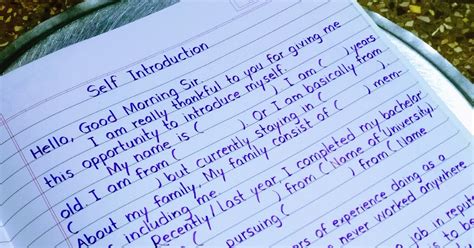 Self Introduction
Hello, Good Morning Sir.
I am really thankful to you for giving me
this opportunity to introduce myself.
My name is ( ). I am ( ) years
old. I am from ( ) Or I am basically from
( ) but currently staying in ( )
About my family, My family consist of ( ) mem-
including me.
Recently/Last year I completed my bachelor
( ) from (Name of University)
pursuing ( ) from (Name
of experience doing as a
never worked anywhere